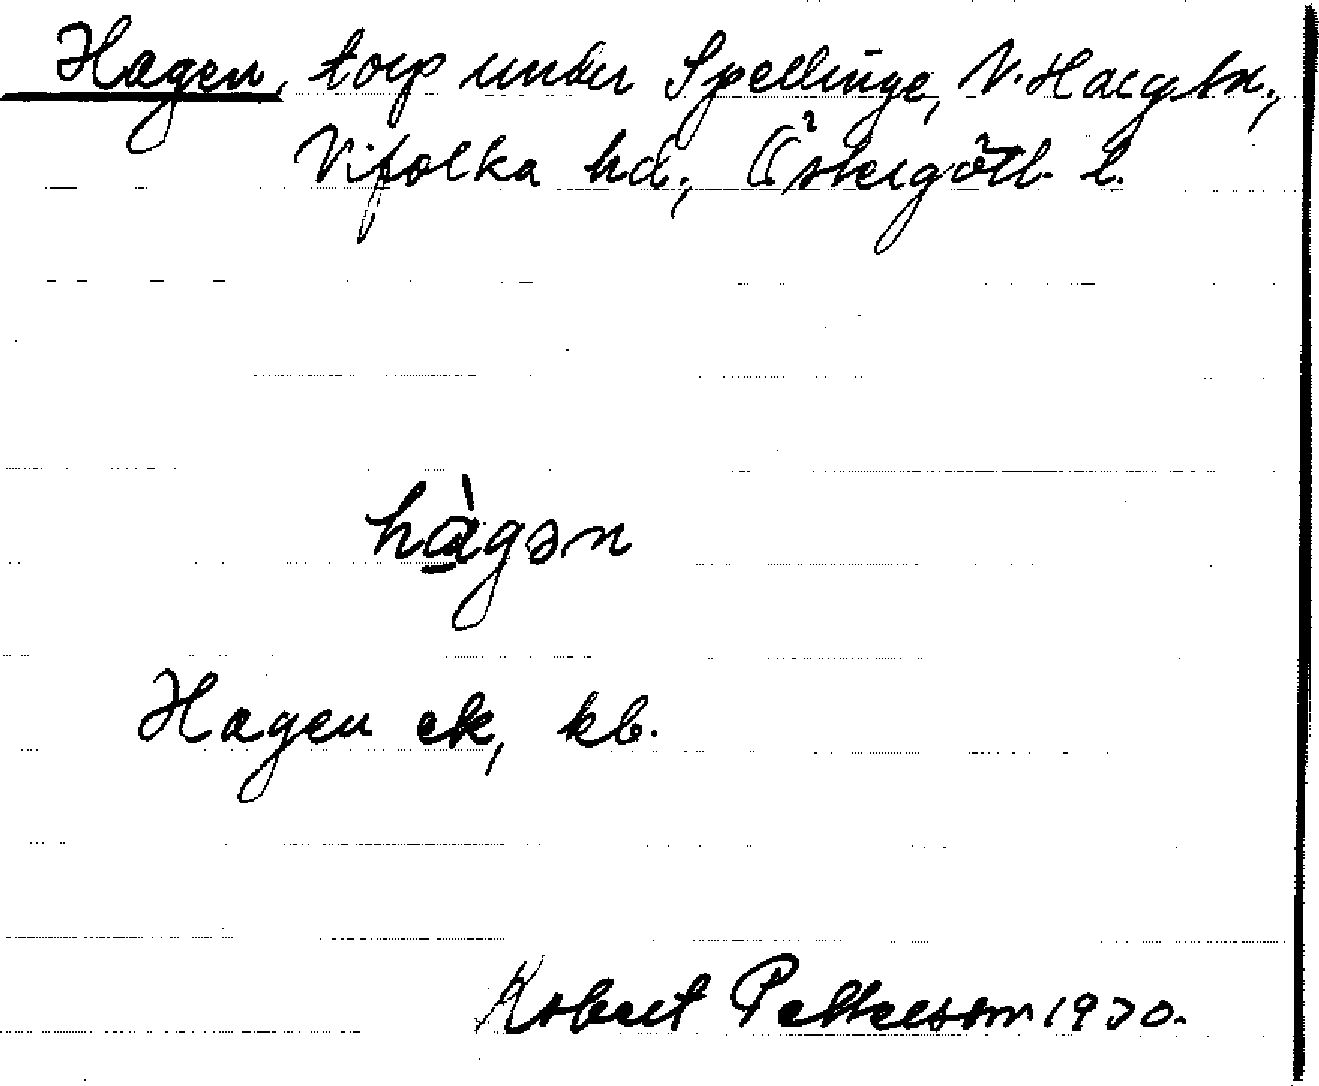 Hagen, torp under Spellinge, V. Harg sn.,
Vifolka hd., Östergötl. l.
hàgən
Hagen ek, kb.
Robert Pettersson 1930.